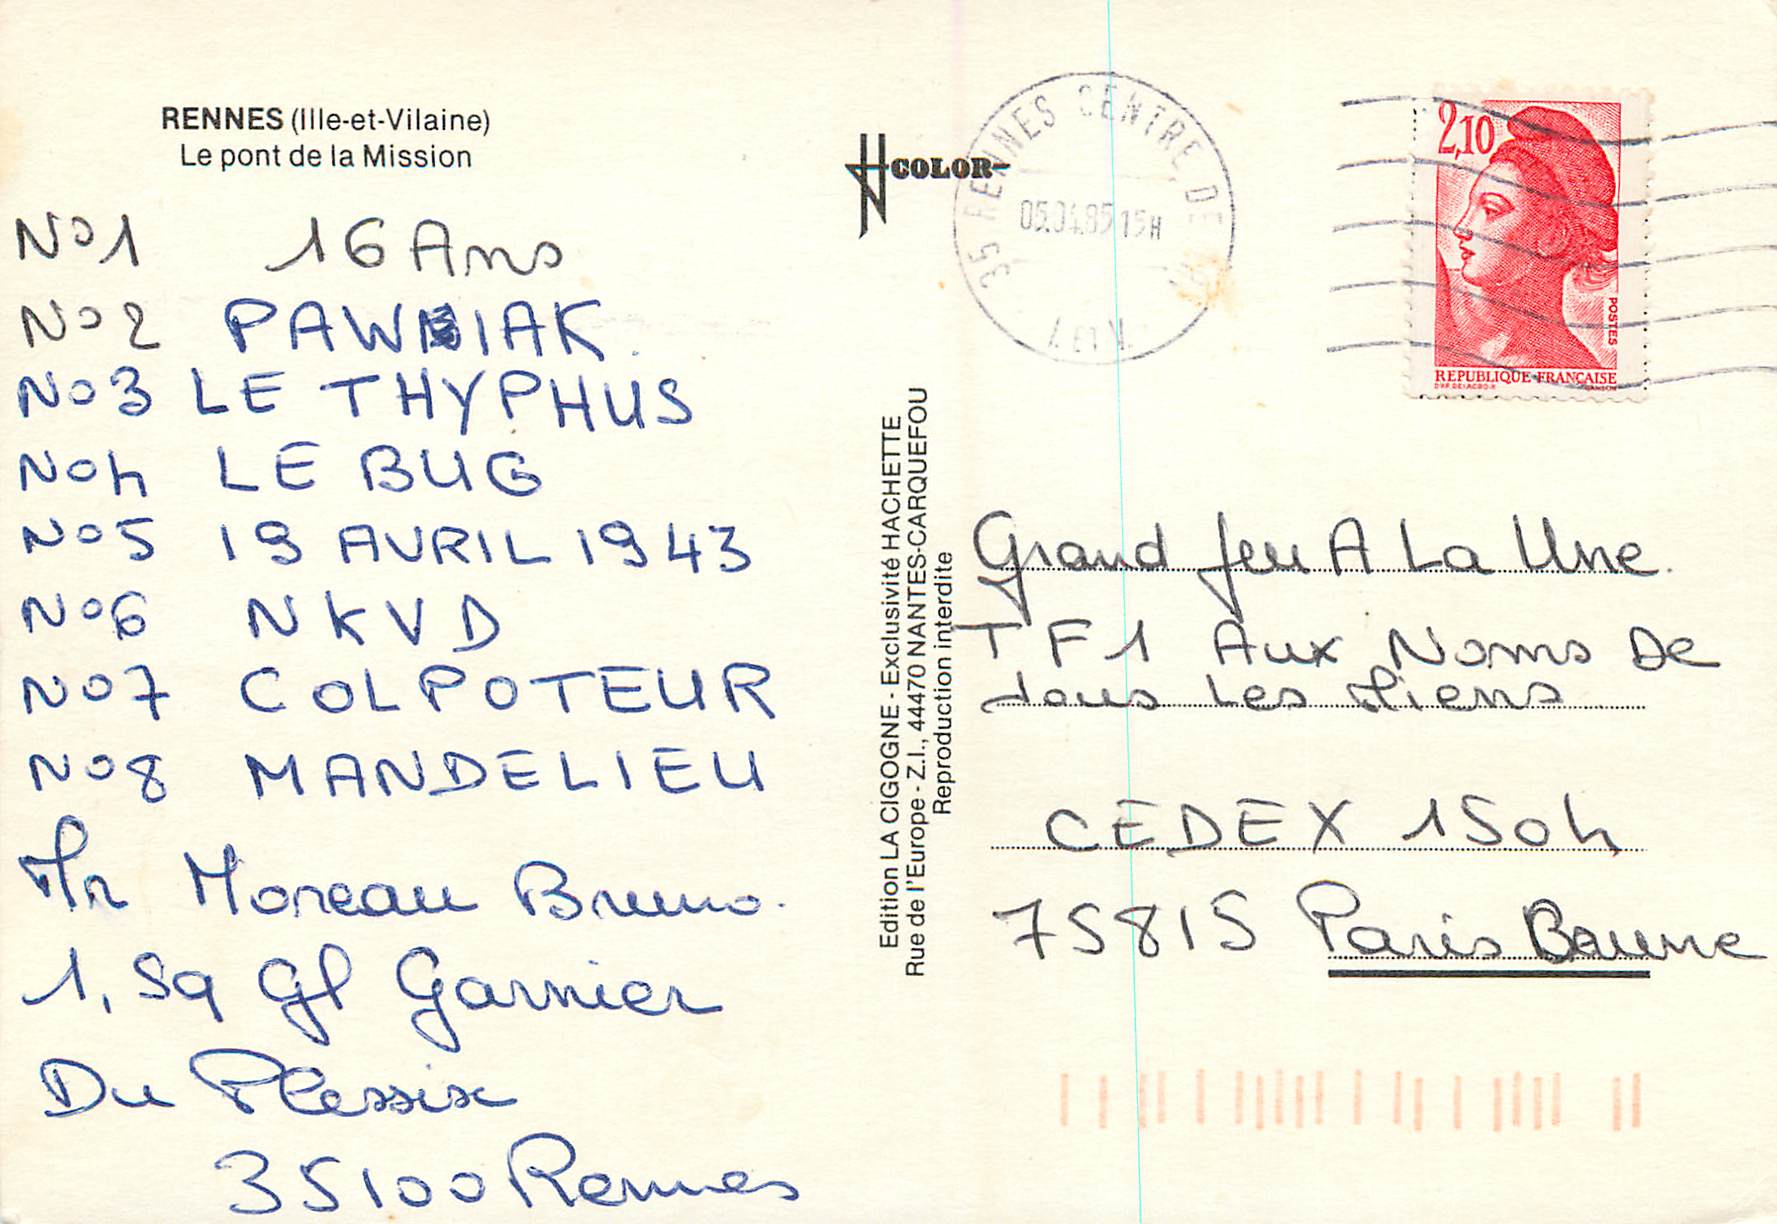 RENNES (Ille-et-Vilaine)
Le pont de la Mission
No1 16 Ans
No2 PAWNIAK
No3 LE THYPHUS
No4 LE BUG
No5 19 AVRIL 1943
No6 NKVD
No7 COLPOTEUR
No8 MANDELIEU
Mr Moreau Bruno.
1, Sq Gl Garnier
Du Plessix
35100 Rennes
COLOR
Edition LA CIGOGNE - Exclusivité HACHETTE
Rue de l'Europe - Z.I., 44470 NANTES-CARQUEFOU
Reproduction interdite
35 RENNES CENTRE DE
05.04.85 15H
I. ET V.
2,10
POSTES
REPUBLIQUE FRANÇAISE
Grand jeu A La Une
TF1 Aux Noms De
tous Les Miens
CEDEX 1504
75815 Paris Brune